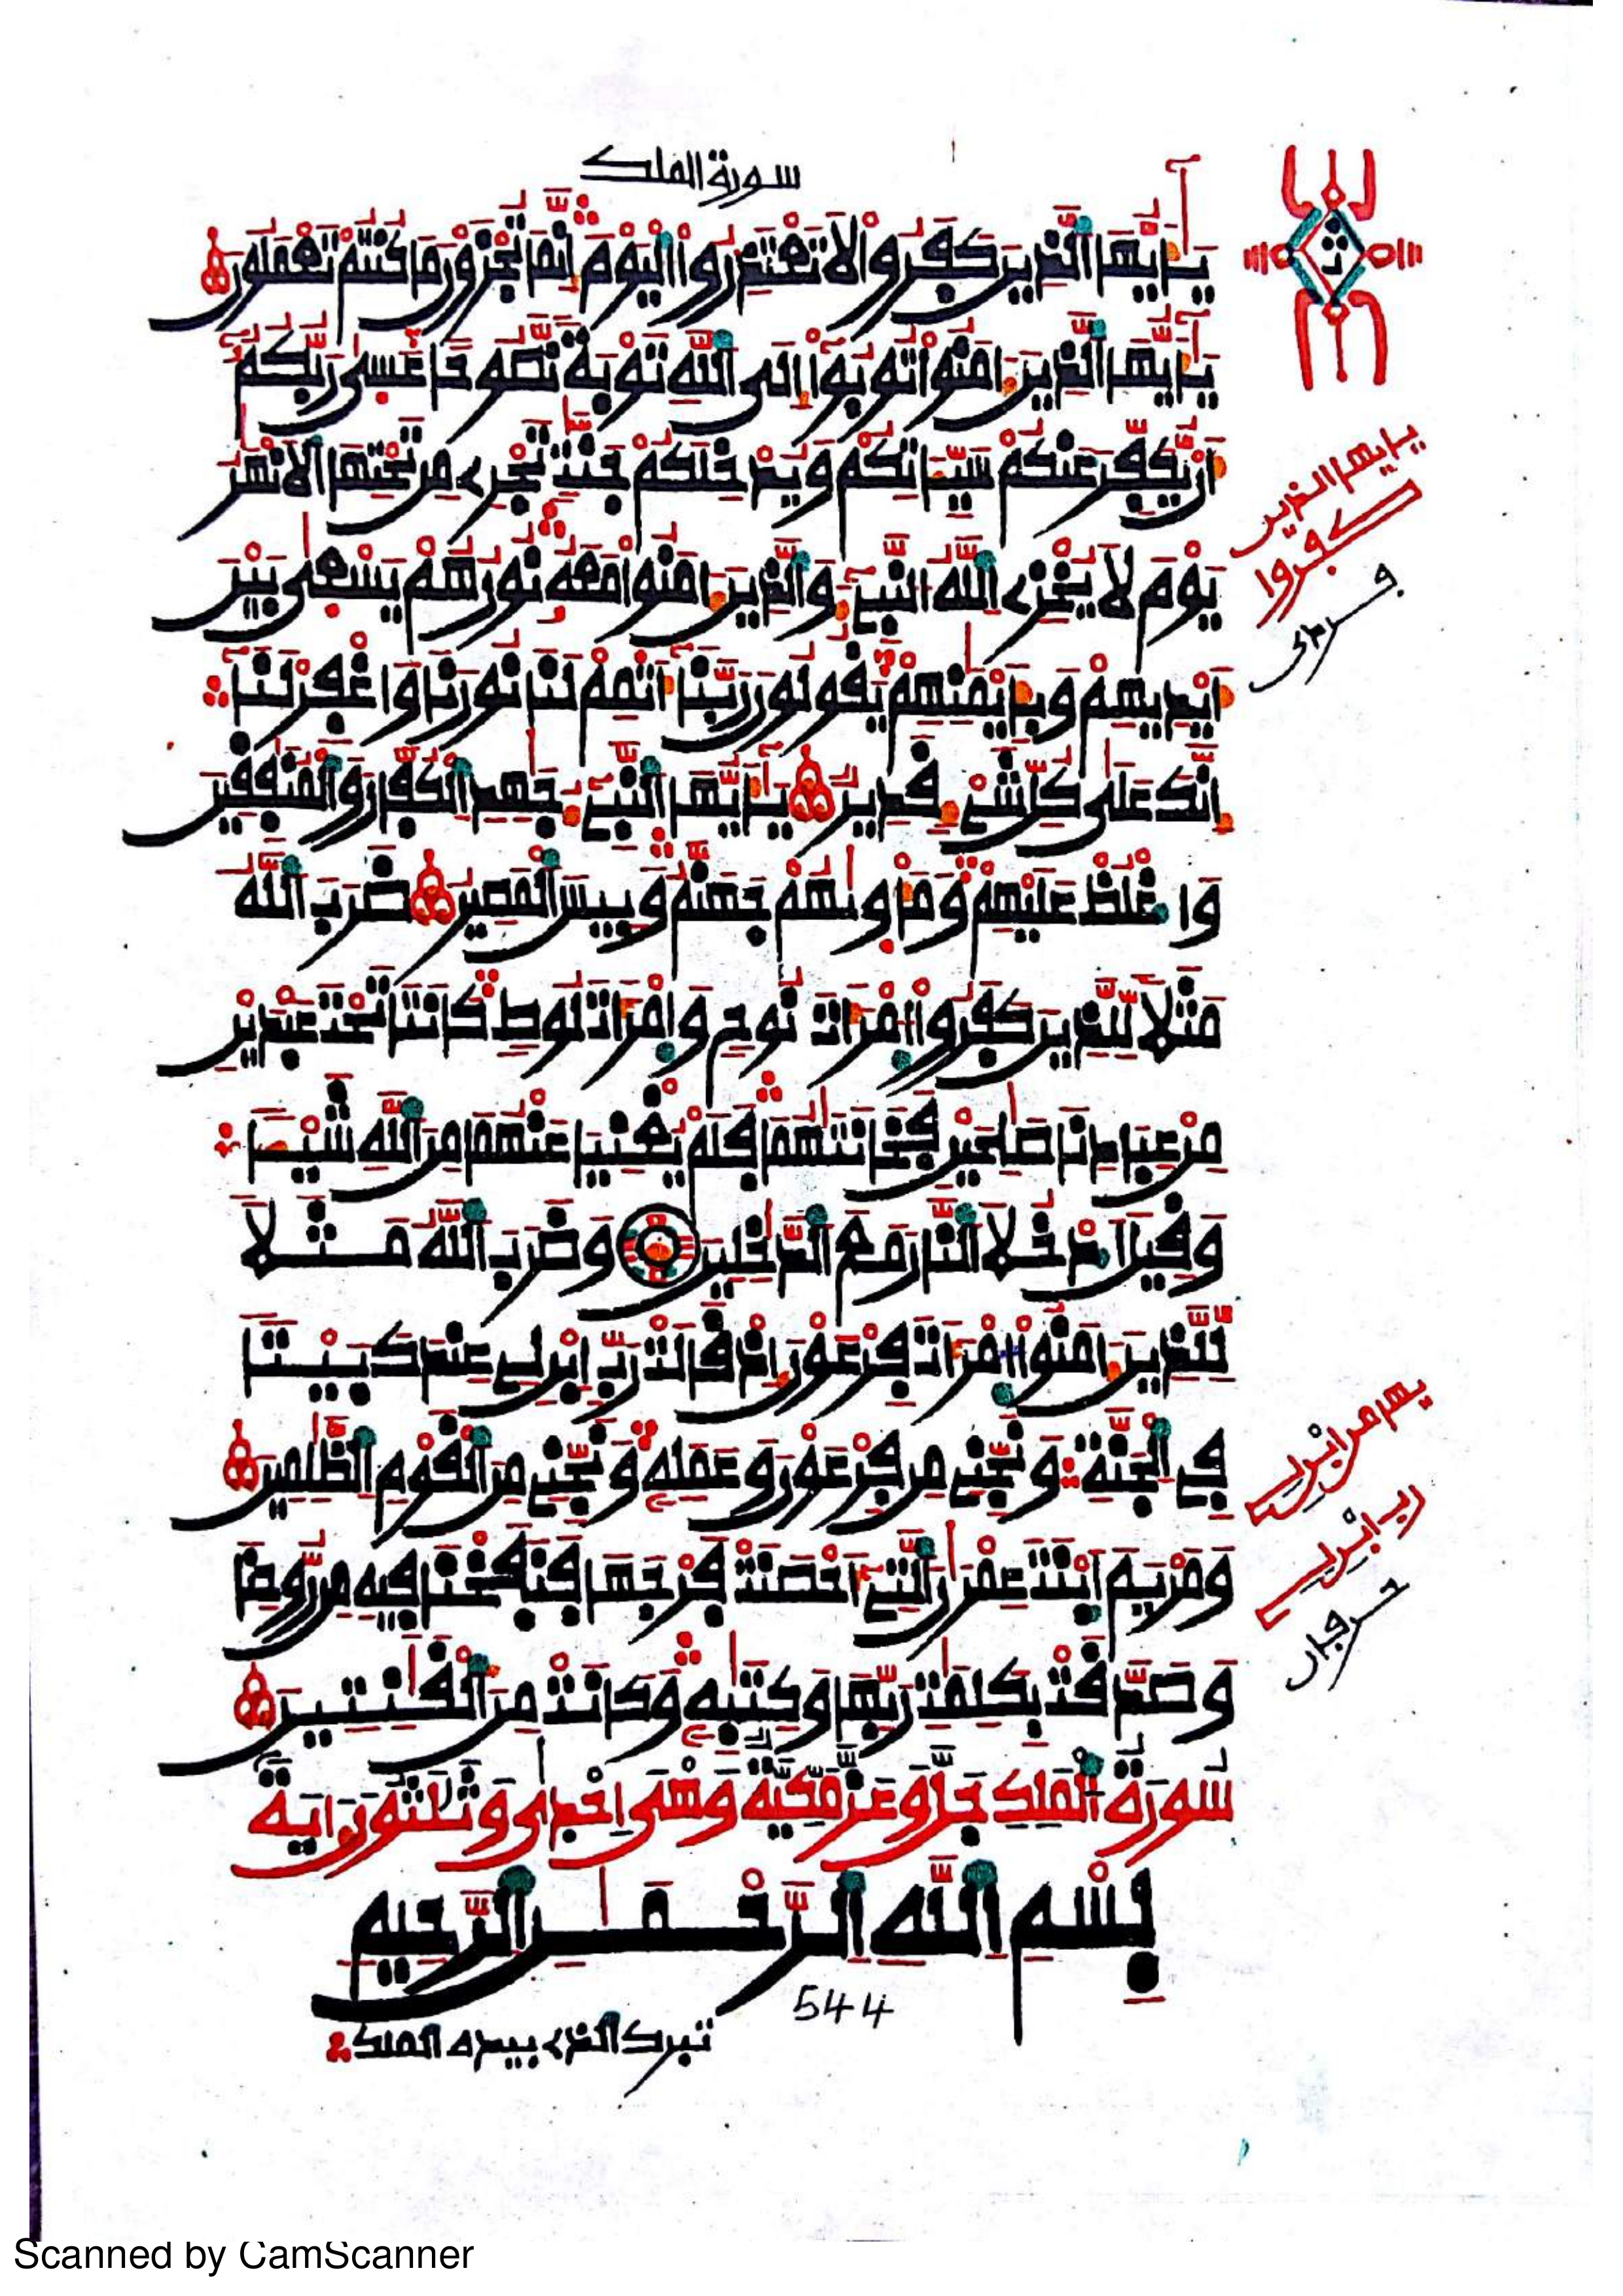 سورة الملك
يَٰٓأَيُّهَا ٱلَّذِينَ كَفَرُواْ لَا تَعْتَذِرُواْ ٱلْيَوْمَ إِنَّمَا تُجْزَوْنَ مَا كُنتُمْ تَعْمَلُونَ
يَٰٓأَيُّهَا ٱلَّذِينَ ءَامَنُواْ تُوبُوٓاْ إِلَى ٱللَّهِ تَوْبَةً نَّصُوحًا عَسَىٰ رَبُّكُمُۥٓ
أَنْ يُّكَفِّرَ عَنكُمْ سَيِّـَٔاتِكُمْ وَيُدْخِلَكُمْ جَنَّٰتٍ تَجْرِي مِن تَحْتِهَا ٱلْأَنْهَٰرُ
يَوْمَ لَا يُخْزِي ٱللَّهُ ٱلنَّبِيٓءَ وَٱلَّذِينَ ءَامَنُواْ مَعَهُۥ نُورُهُمْ يَسْعَىٰ بَيْنَ
أَيْدِيهِمْ وَبِأَيْمَٰنِهِمْ يَقُولُونَ رَبَّنَآ أَتْمِمْ لَنَا نُورَنَا وَٱغْفِرْ لَنَآ
إِنَّكَ عَلَىٰ كُلِّ شَيْءٍ قَدِيرٌ يَٰٓأَيُّهَا ٱلنَّبِيٓءُ جَٰهِدِ ٱلْكُفَّارَ وَٱلْمُنَٰفِقِينَ
وَٱغْلُظْ عَلَيْهِمْ وَمَأْوَىٰهُمْ جَهَنَّمُ وَبِيسَ ٱلْمَصِيرُ ضَرَبَ ٱللَّهُ
مَثَلًا لِّلَّذِينَ كَفَرُواْ ٱمْرَأَتَ نُوحٍ وَٱمْرَأَتَ لُوطٍ كَانَتَا تَحْتَ عَبْدَيْنِ
مِنْ عِبَادِنَا صَٰلِحَيْنِ فَخَانَتَٰهُمَا فَلَمْ يُغْنِيَا عَنْهُمَا مِنَ ٱللَّهِ شَيْـًٔا
وَقِيلَ ٱدْخُلَا ٱلنَّارَ مَعَ ٱلدَّٰخِلِينَ وَضَرَبَ ٱللَّهُ مَثَلًا
لِّلَّذِينَ ءَامَنُواْ ٱمْرَأَتَ فِرْعَوْنَ إِذْ قَالَتْ رَبِّ ٱبْنِ لِي عِندَكَ بَيْتًا
فِي ٱلْجَنَّةِ وَنَجِّنِي مِن فِرْعَوْنَ وَعَمَلِهِۦ وَنَجِّنِي مِنَ ٱلْقَوْمِ ٱلظَّٰلِمِينَ
وَمَرْيَمَ ٱبْنَتَ عِمْرَٰنَ ٱلَّتِيٓ أَحْصَنَتْ فَرْجَهَا فَنَفَخْنَا فِيهِ مِن رُّوحِنَا
وَصَدَّقَتْ بِكَلِمَٰتِ رَبِّهَا وَكِتَٰبِهِۦ وَكَانَتْ مِنَ ٱلْقَٰنِتِينَ
سُورَةُ ٱلْمَلِكِ جَلَّ وَعَزَّ مَكِّيَّةٌ وَهْيَ إِحْدَىٰ وَثَلَٰثُونَ ءَايَةً
بِسْمِ ٱللَّهِ ٱلرَّحْمَٰنِ ٱلرَّحِيمِ
544
تبرك الذي بيده الملك
يايها الذين
كفروا
رب ابن لي
Scanned by CamScanner